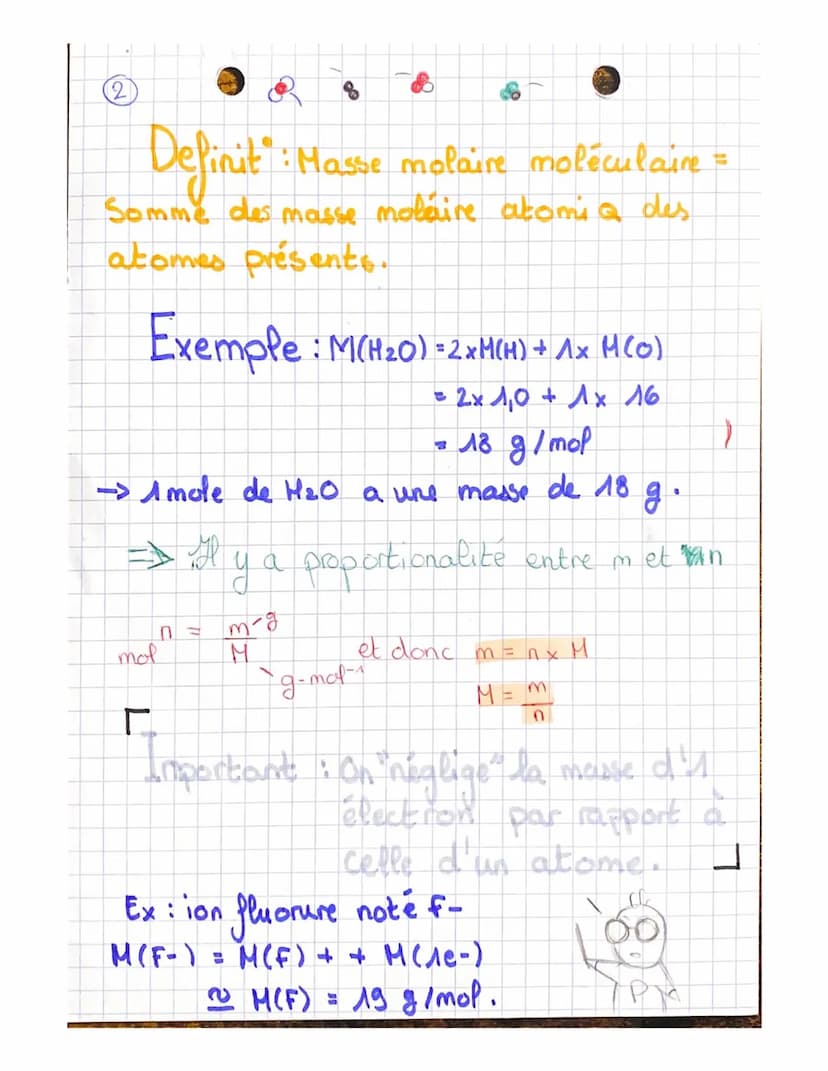 2
Definit° : Masse molaire moléculaire =
Somme des masse molaire atomiQ des
atomes présents.
Exemple : M(H2O) = 2xM(H) + 1x M(O)
= 2x 1,0 + 1x 16
= 18 g/mol
→ 1 mole de H2O a une masse de 18 g.
=> Il y a proportionalité entre m et n
mol n = m g / M g-mol-1 et donc m = n x M
M = m / n
Important : On "néglige" la masse d'1
électron par rapport à
celle d'un atome.
Ex : ion fluorure noté F-
M(F-) = M(F) + + M(1e-)
≃ M(F) = 19 g/mol.
P